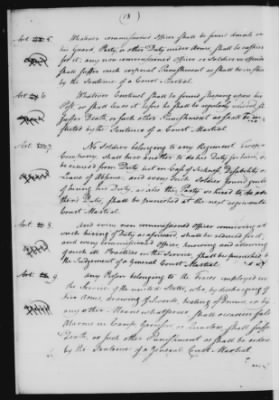 ( 8 )
Art. 5. Whatever commissioned officer shall be found drunk on
his Guard, Party, or other Duty under Arms, shall be cashier'd
for it; any non commissioned officer or Soldier so offending
shall suffer such corporal Punishment as shall be inflicted
by the Sentence of a Court Martial.
Art. 6 Whatever Centinel shall be found sleeping upon his
Post or shall leave it before he shall be regularly relieved, shall
suffer Death, or such other Punishment as shall be in-
flicted by the Sentence of a Court-Martial.
Art. 7. No Soldier belonging to any Regiment Troop or
Company shall hire another to do his Duty for him, or
be excused from Duty but in Case of Sickness, Disability or
Leave of Absence. And every such Soldier found guilty
of hiring his Duty, as also the Party so hired to do an-
other's Duty, shall be punished at the next regimental
Court Martial.
Art. 8. And every non commissioned officer conniving at
such hiring of Duty as aforesaid, shall be reduced for it;
and every commissioned officer, knowing and allowing
such ill Practices in the Service, shall be punished by
the Judgement of a General Court-Martial.
Art. 9 Any Person belonging to the Forces employed in
the Service of the united States, who, by discharging of
Fire Arms, drawing of Swords, beating of Drums, or by
any other Means whatsoever, shall occasion false
Alarms in Camp Garrison or Quarters, shall suffer
Death, or such other Punishment as shall be ordered
by the Sentence of a General Court-Martial.